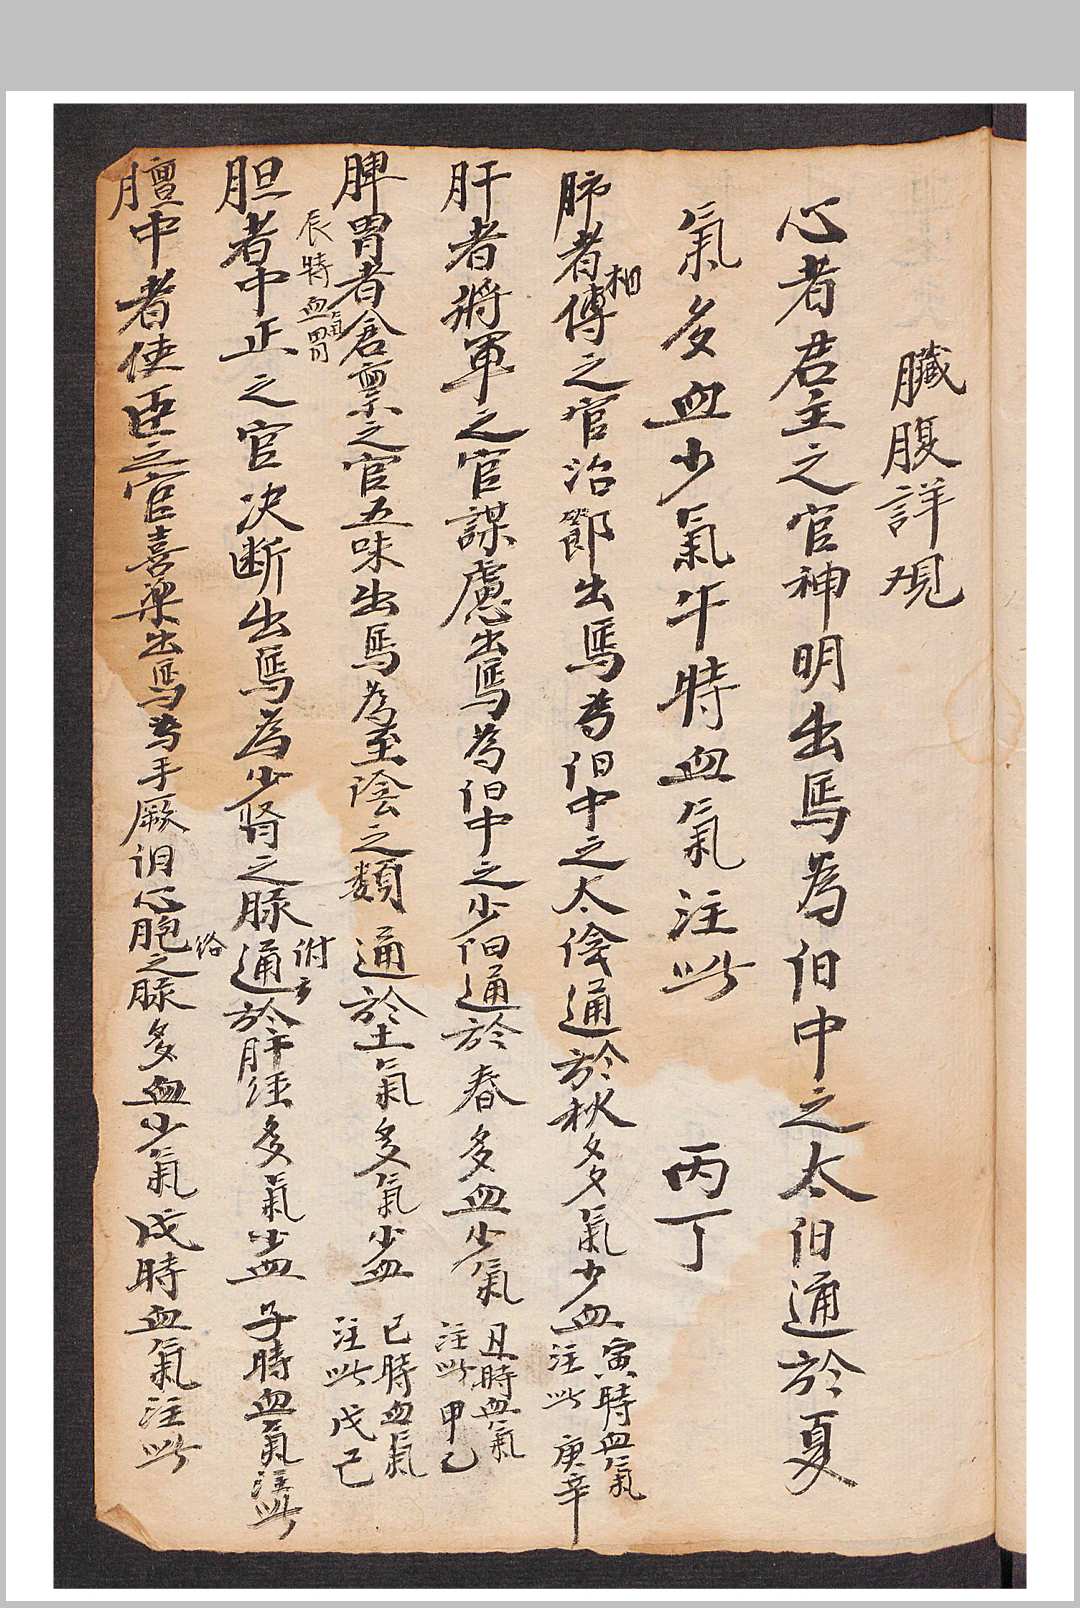 臟腹詳观
心者君主之官神明出焉為阳中之太阳通於夏
氣多血少氣午時血氣注此 丙丁
肺者相傅之官治節出焉為阳中之太陰通於秋多多氣少血寅時血氣注此庚辛
肝者將軍之官謀慮出焉為阳中之少阳通於春多血少氣丑時血氣注此甲乙
脾胃者倉禀之官五味出焉為至陰之類通於土氣多氣少血巳時血氣注此戊己
辰時血氣胃
胆者中正之官决断出焉為少肾之脉附于通於肝经多氣少血子時血氣注此
膻中者使臣之官喜楽出焉為手厥阴心胞络之脉多血少氣戌時血氣注此